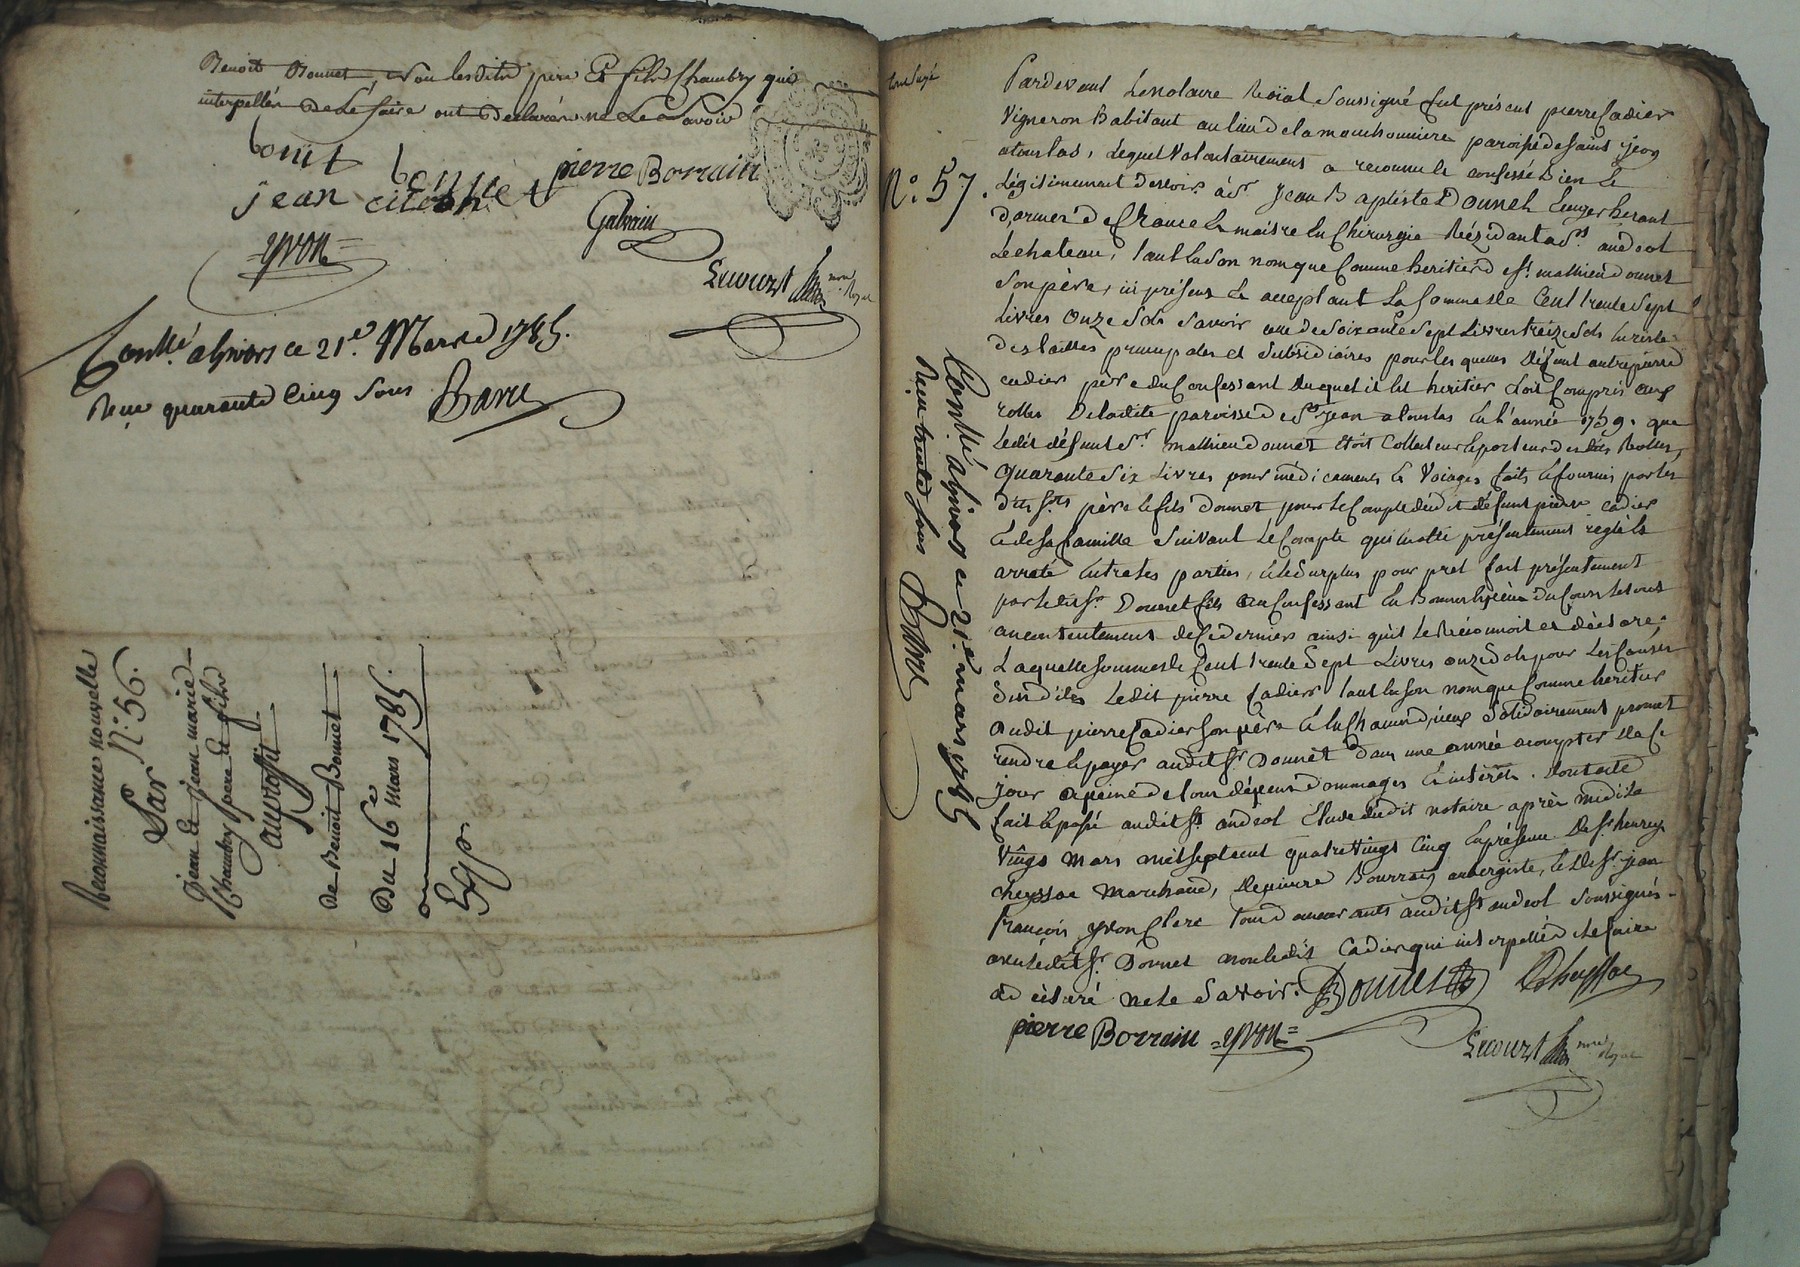 Benoit Bonnet, Non lesdits pere et fils Chambry qui
interpellés de Le faire ont declarés ne Le Savoir
bonit bonnet
pierre Borrain
jean citerne
Galvain
=yvon=
Lecourt
nore Royal
Conllé a Thiers ce 21e Mars 1785.
Reçu quarante Cinq Sous Barre
Reconnaissance nouvelle
N.° 56.
Par
jean et jean marie
Chambry pere et fils
au proffit
de Benoit Bonnet
Du 16e mars 1785.
Exp
N.° 57.
Conllé a Thiers ce 21e mars 1785
Reçu trente sous Barre
Pardevant Le notaire Roïal Soussigné fut présent pierre Cadier
Vigneron habitant au lieu de la mouchonniere paroisse de saint jean
, Lequel Volontairement a reconnu et confessé bien et
Légitimement devoir à Sr. Jean Baptiste Donnet
de france et maitre en Chirurgie Résidant à St. andeol
Le chateau, tant En Son nom que Comme heritier de Sr. mathieu donnet
Son père, ici présent et acceptant La Somme de Cent trente Sept
Livres Onze Sols Savoir celle de Soixante Sept Livres treize Sols En reste
des tailles principales et Subsidiaires pour les quelles Défunt autre pierre
cadier père du Confessant duquel il Est heritier Etoit Compris aux
rolles De ladite paroisse de St. jean en L'année 1759. que
Ledit défunt Sr. mathieu donnet Etoit Collecteur porteur desdits Rolles,
Quarante Six Livres pour médicaments et Voiages faits et fournis par les
dits Srs. père et fils donnet pour le Compte dudit défunt pierre cadier
et de Sa famille Suivant Le Compte qui En a été présentement réglé et
arreté Entre les parties, et le Surplus pour pret fait présentement
par ledit Sr. Donnet fils au Confessant En Bonnes Espèces du Cours le tout
au contentement de Ce dernier ainsi qu'il le Reconnoit et déclare,
Laquelle Somme de Cent trente Sept Livres onze Sols pour Les Causes
Susdites Ledit pierre Cadier tant En Son nom que Comme heritier
dudit pierre Cadier Son père et En Chacun d'iceux Solidairement promet
rendre et payer audit Sr. Donnet dans une année a compter de Ce
jour a peine de tous dépens dommages et intérêts. Dont acte
fait et passé audit St. andeol Etude dudit notaire après midi le
Vingt mars mil sept cent quatre Vingt Cinq En présence de Sr. henry
cheyssac Marchand, de pierre Bourrain aubergiste, et de Sr. jean
françois yvon Clerc tous demeurants audit St. andeol Soussignés
avec ledit Sr. Donnet non ledit Cadier qui interpellé de le faire
a déclaré ne le Savoir. Donnet Cheyssac
pierre Borrain =yvon=
Lecourt
nore Royal